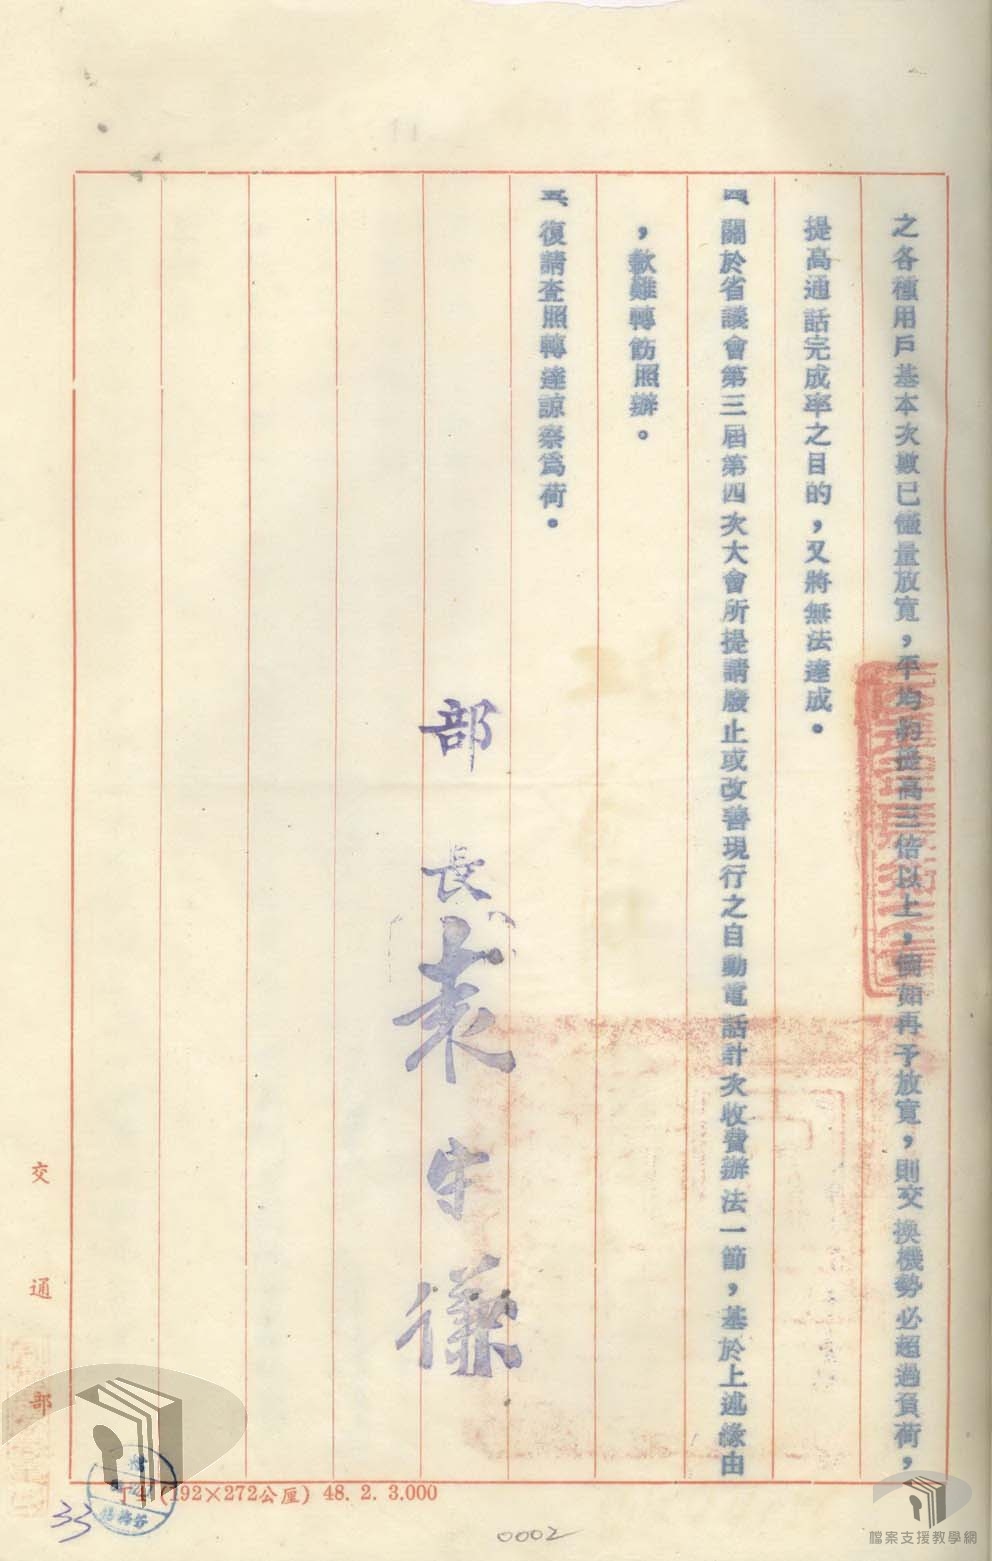 之各種用戶基本次數已儘量放寬，平均約提高三倍以上，倘如再予放寬，則交換機勢必超過負荷，
提高通話完成率之目的，又將無法達成。
四、關於省議會第三屆第四次大會所提請廢止或改善現行之自動電話計次收費辦法一節，基於上述緣由
，歉難轉飭照辦。
五、復請查照轉達諒察為荷。
部長袁守謙
交通部
(192×272公厘) 48. 2. 3.000
33
0002
檔案支援教學網